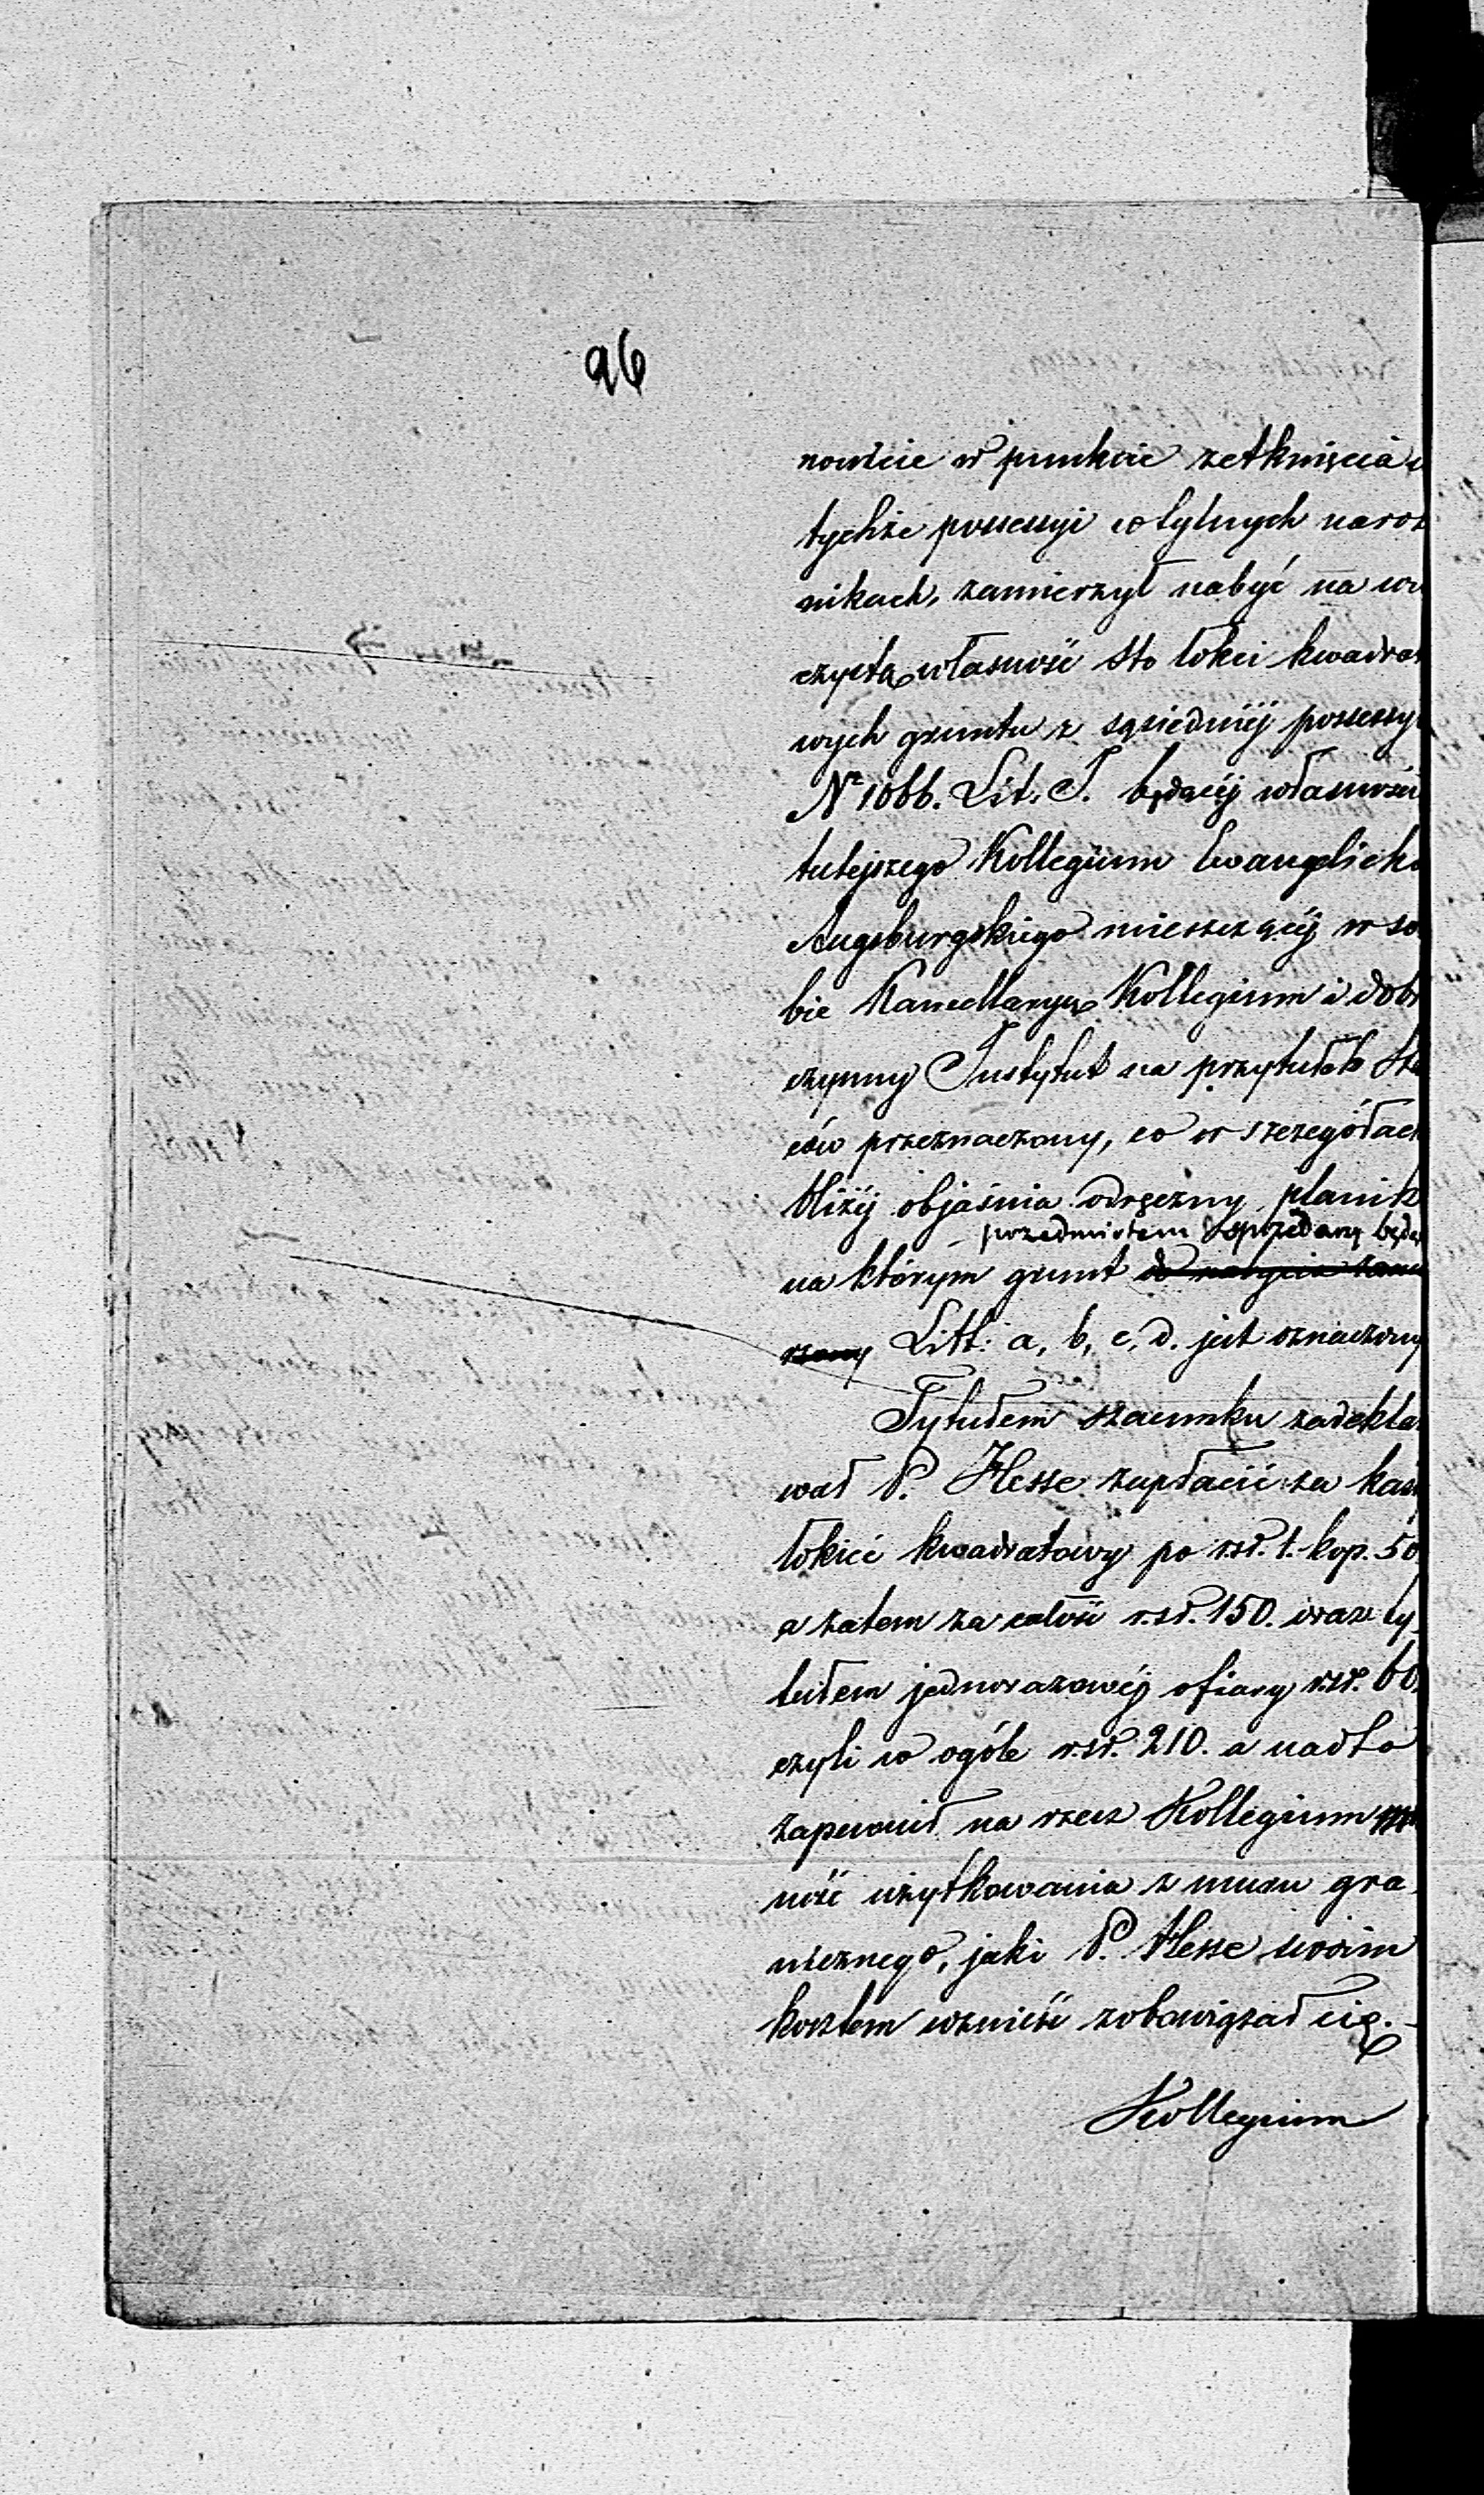 96
nowicie w punkcie zetknięcia
tychże possessyi w tylnych naroż
nikach, zamierzył nabyć na wie
czystą własność sto łokci kwadrato
wych gruntu z sąsiedniéj possessyi
Nr 1066. Lit. J. będącéj własności
tutejszego Kollegium Ewangelicko
Augsburgskiego mieszczącéj w so
bie Kancellaryą Kollegium i dobr
czynny Instytut na przytułek Sta
ców przeznaczony, co w szczegółach
bliżéj objaśnia odręczny planik
przedmiotem sprzedaży będą
na którym grunt do nabycia zamie
rzony Litt: a, b, c, d. jest oznaczony
Tytułem szacunku zadekla
wał P. Hesse zapłacić za każ
łokieć kwadratowy po rsr. 1. kop. 50
a zatem za całość rsr. 150. oraz ty
tułem jednorazowéj ofiary rsr. 60.
czyli w ogóle rsr. 210. a nadto
zapewnił na rzecz Kollegium
ność użytkowania z muru gra
nicznego, jaki P. Hesse swoim
kosztem wznieść zobowiązał się.
Kollegium